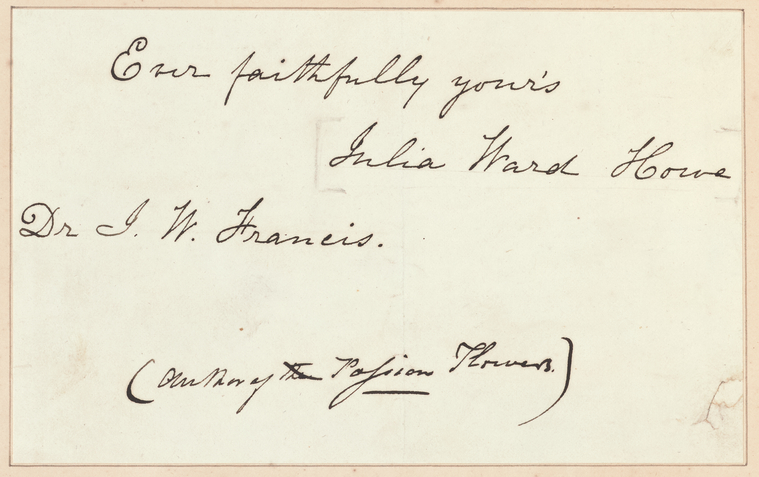 Ever faithfully your's
Julia Ward Howe
Dr J. W. Francis.
(Author of the Passion Flowers.)